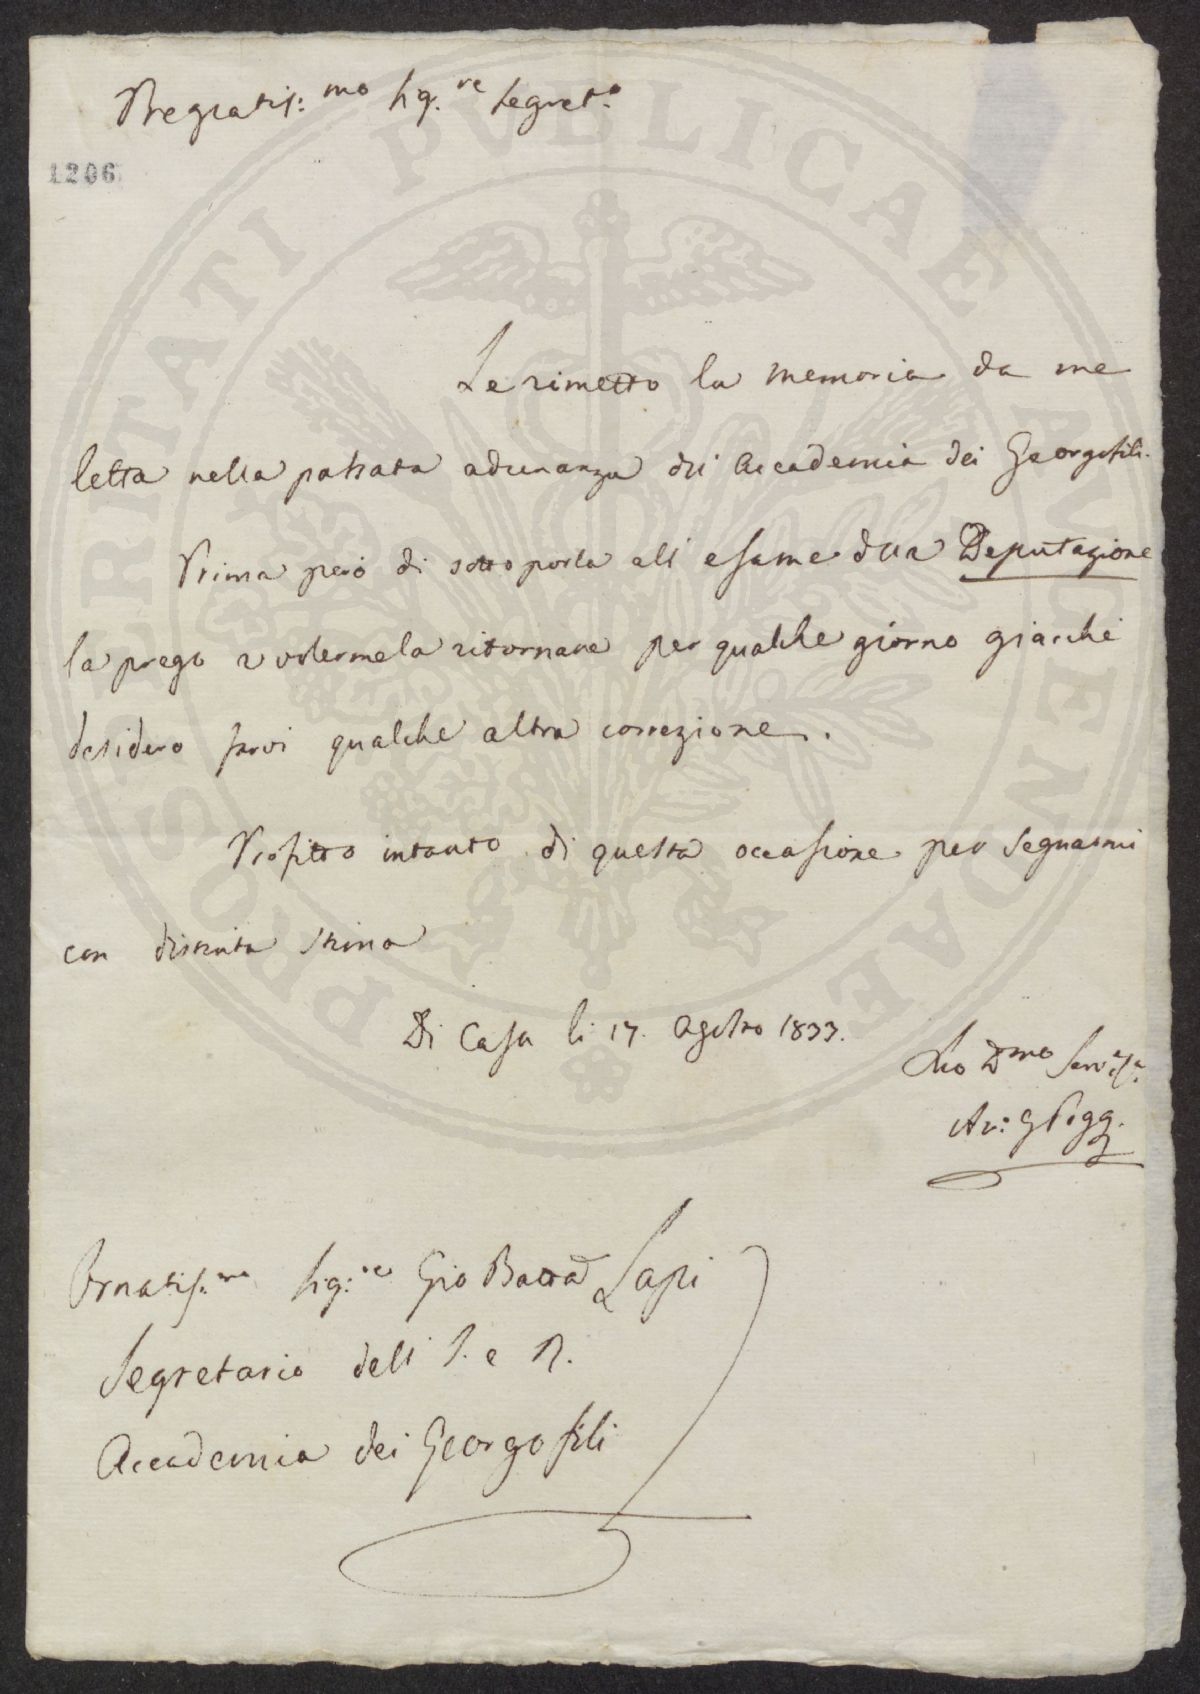 Pregiatis:mo Sig.re Segret.o
1206
Le rimetto la memoria da me
letta nella passata adunanza dell Accademia dei Georgofili.
Prima però di sottoporla all' esame della Deputazione
la prego a volermela ritornare per qualche giorno giacchè
desidero farvi qualche altra correzione.
Profitto intanto di questa occasione per segnarmi
con distinta stima
Di Casa li 17. Agosto 1833.
Suo D.mo
Av:
Ornatis.mo Sig:re Gio Batta Lapi
Segretario dell' I. e R.
Accademia dei Georgofili
PROSPERITATI PVBLICAE AVGENDAE